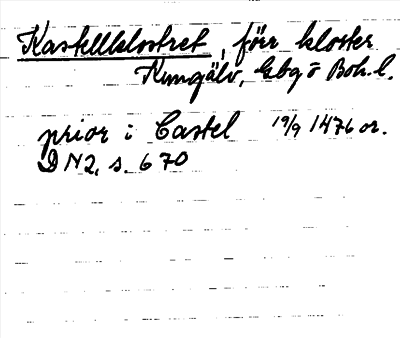 Kastellklostret, förr kloster
Kungälv, Gbg o Boh. l.
prior i Castel 19/9 1476 or.
DN2, s. 670